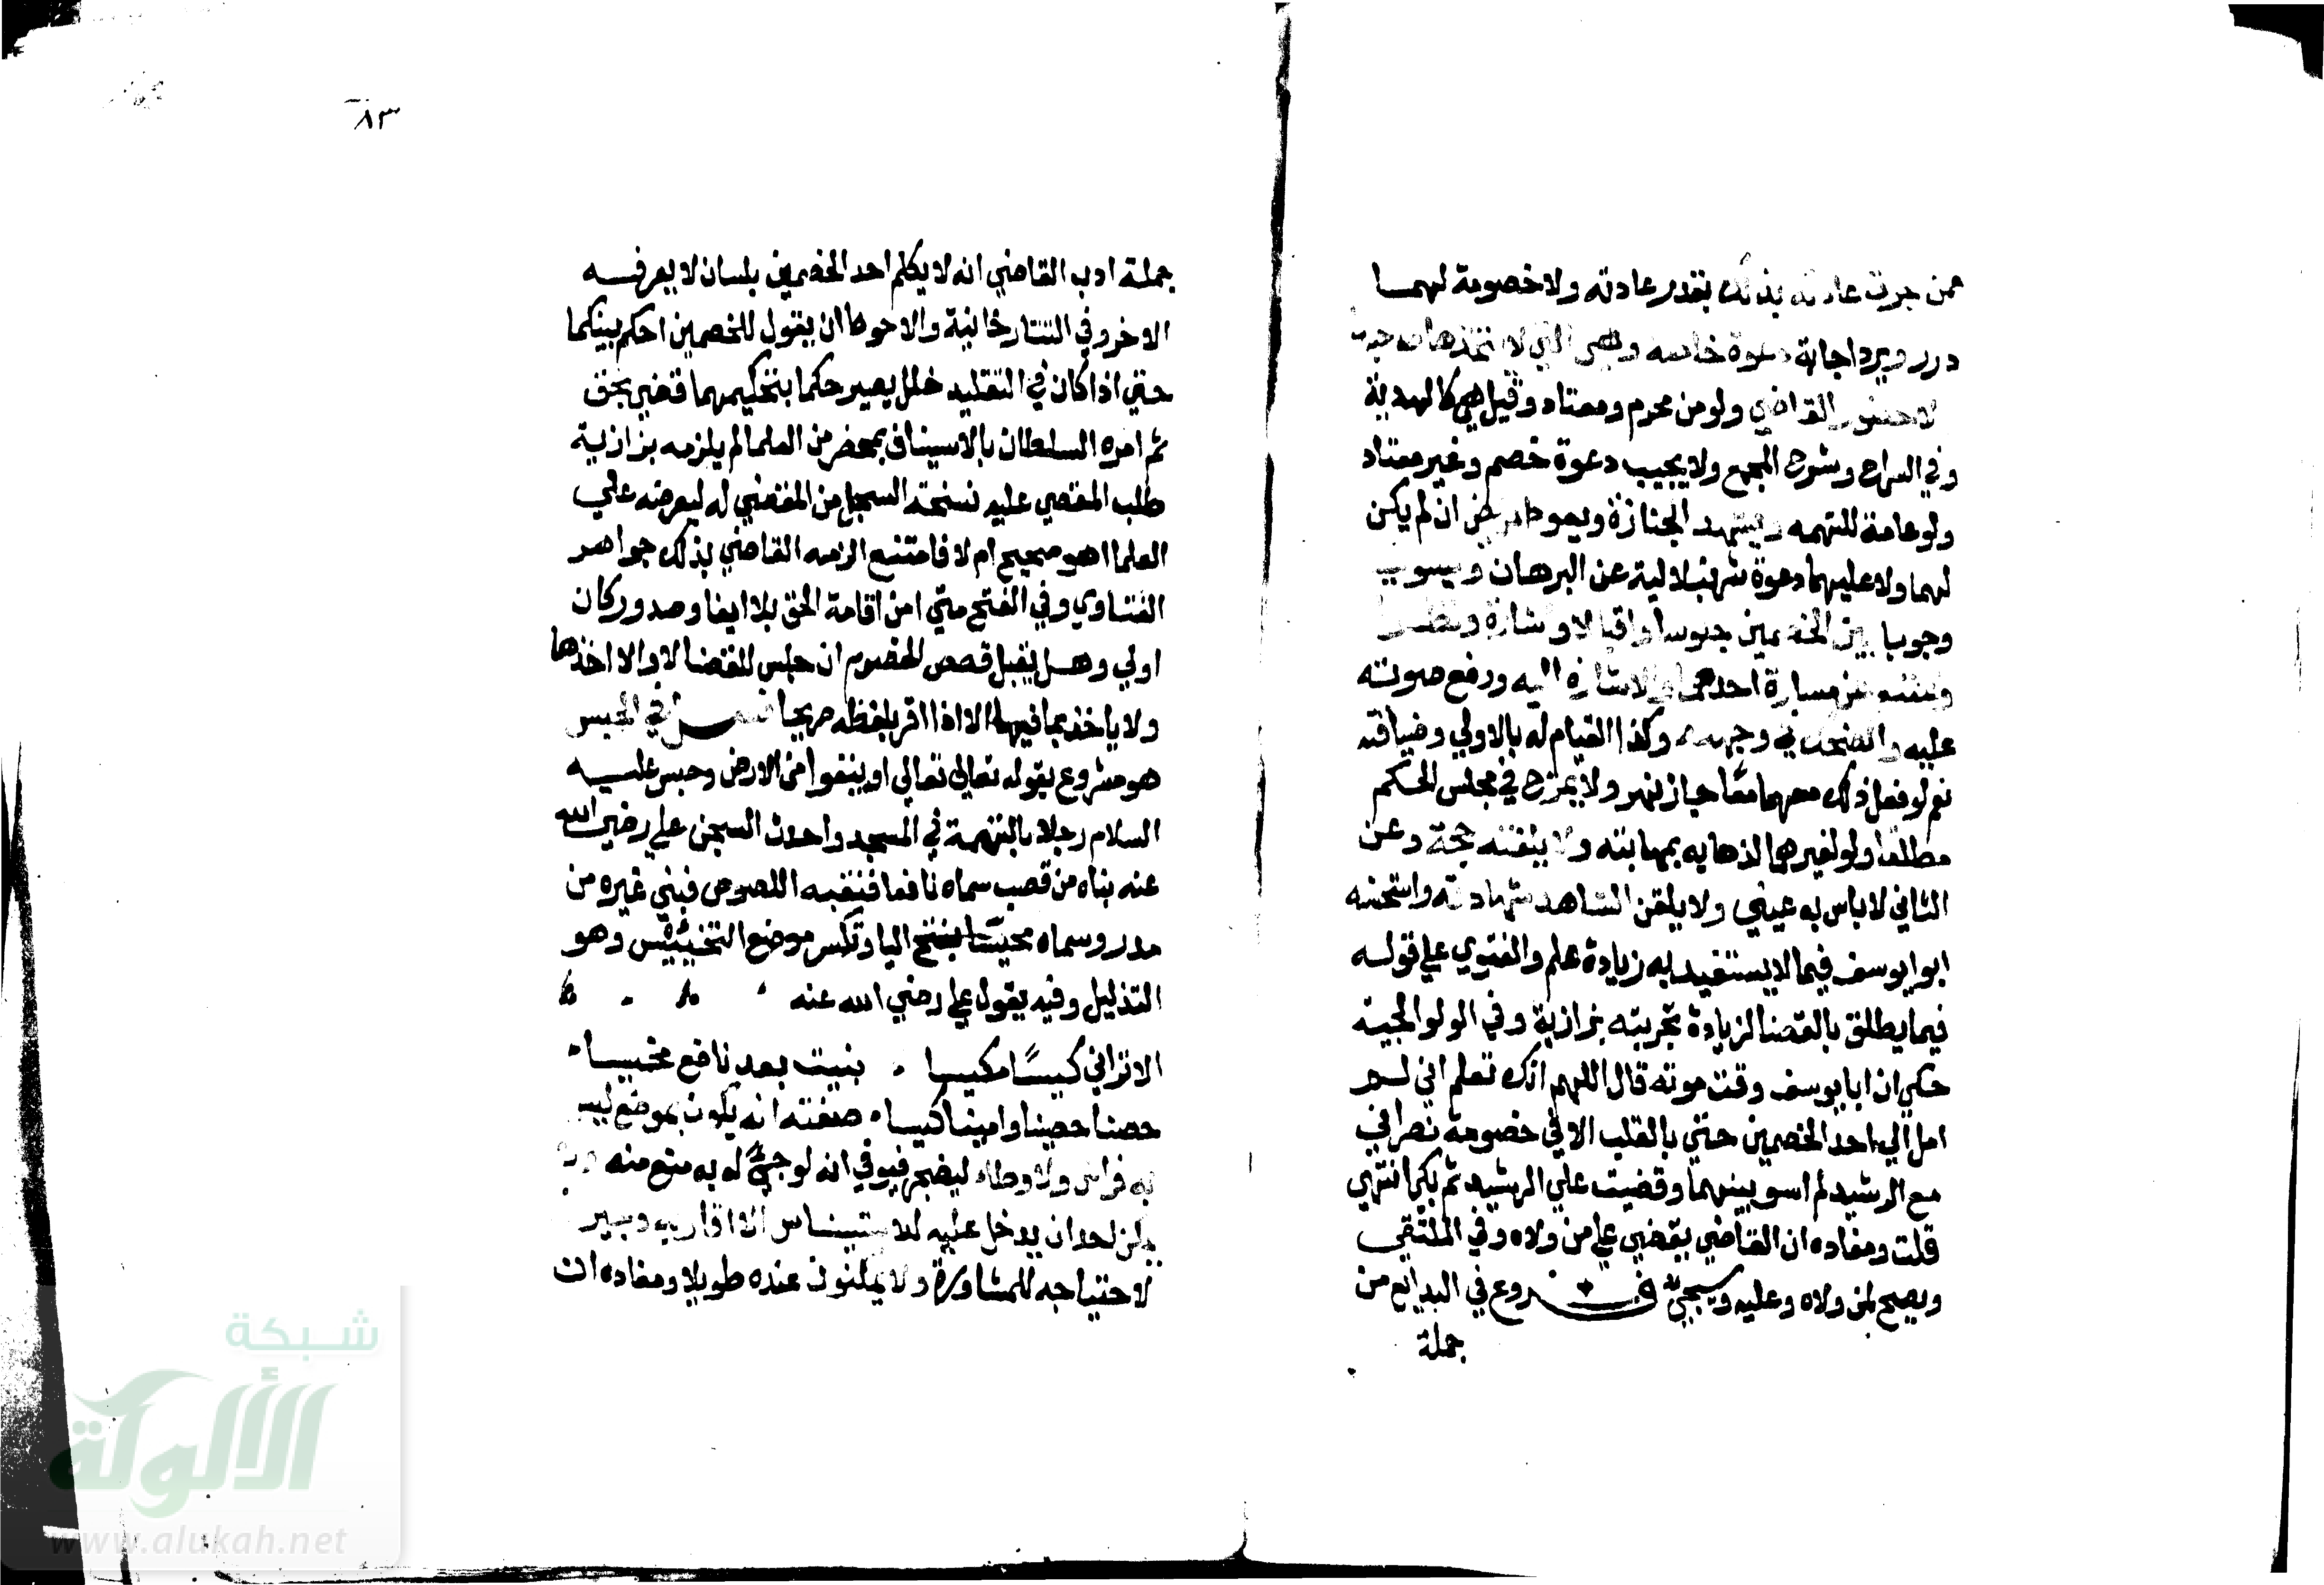 ممن جرت عادته بذلك بقدر عادته ولا خصومة لهما
درر ويرد اجابة دعوة خاصه وهي التي لا يتخذها صاحبها
لا حضور القاضي ولو من محرم ومعتاد وقيل هي كالهدية
وفي السراج وشرح المجمع ولا يجيب دعوة خصم وغير معتاد
ولو عامة للتهمه ويشهد الجنازة ويعود المريض ان لم يكن
لهما ولا عليهما دعوة شرنبلالية عن البرهان ويسوي
وجوبا بين الخصمين جلوسا واقبالا واشارة ونظرا
ويمتنع من مسارة احدهما والاشارة اليه ورفع صوته
عليه والضحك في وجهه وكذا القيام له بالاولي وضيافته
نعم لو فعل ذلك معهما معًا جاز نهر ولا يمزح في مجلس الحكم
مطلقا ولو لغيرهما لذهابه بمهابته ولا يلقنه حجة وعن
الثاني لا باس به عيني ولا يلقن الشاهد شهادته واستحسنه
ابو يوسف فيما لا يستفيد به زيادة علم والفتوي علي قوله
فيما يطلق بالقضا لزيادة تجربته بزازية وفي الولوالجية
حكي ان ابا يوسف وقت موته قال اللهم انك تعلم اني لم
امل الي احد الخصمين حتي بالقلب الا في خصومة نصراني
مع الرشيد لم اسو بينهما وقضيت علي الرشيد ثم بكي انتهي
قلت ومفاده ان القاضي يقضي علي من ولاه وفي الملتقي
ويصح لمن ولاه وعليه وسيجيء فروع في البدايع من
جملة
٨٣
جملة ادب القاضي انه لا يكلم احد الخصمين بلسان لا يعرفه
الاخر وفي التتارخانية والاحوط ان يقول للخصمين احكم بينكما
حتي اذا كان في التقليد خلل يصير حكما بتحكيمهما قضي بحق
ثم امره السلطان بالاسيناف بمحضر من العلما لم يلزمه بزازية
طلب المقضي عليه نسخة السجل من المقضي له ليعرضه علي
العلما اهو صحيح ام لا فامتنع الزمه القاضي بذلك جواهر
الفتاوي وفي الفتح متي امن اقامة الحق بلا ايغا وصدور كان
اولي وهل يقبل قصص الخصوم ان جلس للقضا لا والا اخذها
ولا ياخذ بما فيها الا اذا اقر بلفظه صريحا فصل في الحبس
هو مشروع بقوله تعالي تعالي او ينفوا من الارض وحبس عليه
السلام رجلا بالتهمة في المسجد واحدث السجن علي رضي الله
عنه بناه من قصب سماه نافعا فنقبه اللصوص فبني غيره من
مدر وسماه مخيسًا بفتح اليا وتكسر موضع التخييس وهو
التذليل وفيه يقول علي رضي الله عنه
الا تراني كيسًا مكيسا بنيت بعد نافع مخيسا
حصنا حصينا وامينا كيسا صفته انه يكون بموضع ليس
به فراش ولا وطاء ليضجر فيوفي انه لو جيء له به منع منه ولا
يمكن لاحد ان يدخل عليه للاستيناس الا اقاربه وجير
لاحتياجه للمشاورة ولا يمكثون عنده طويلا ومفاده ان
شبكة
الألوكة
www.alukah.net